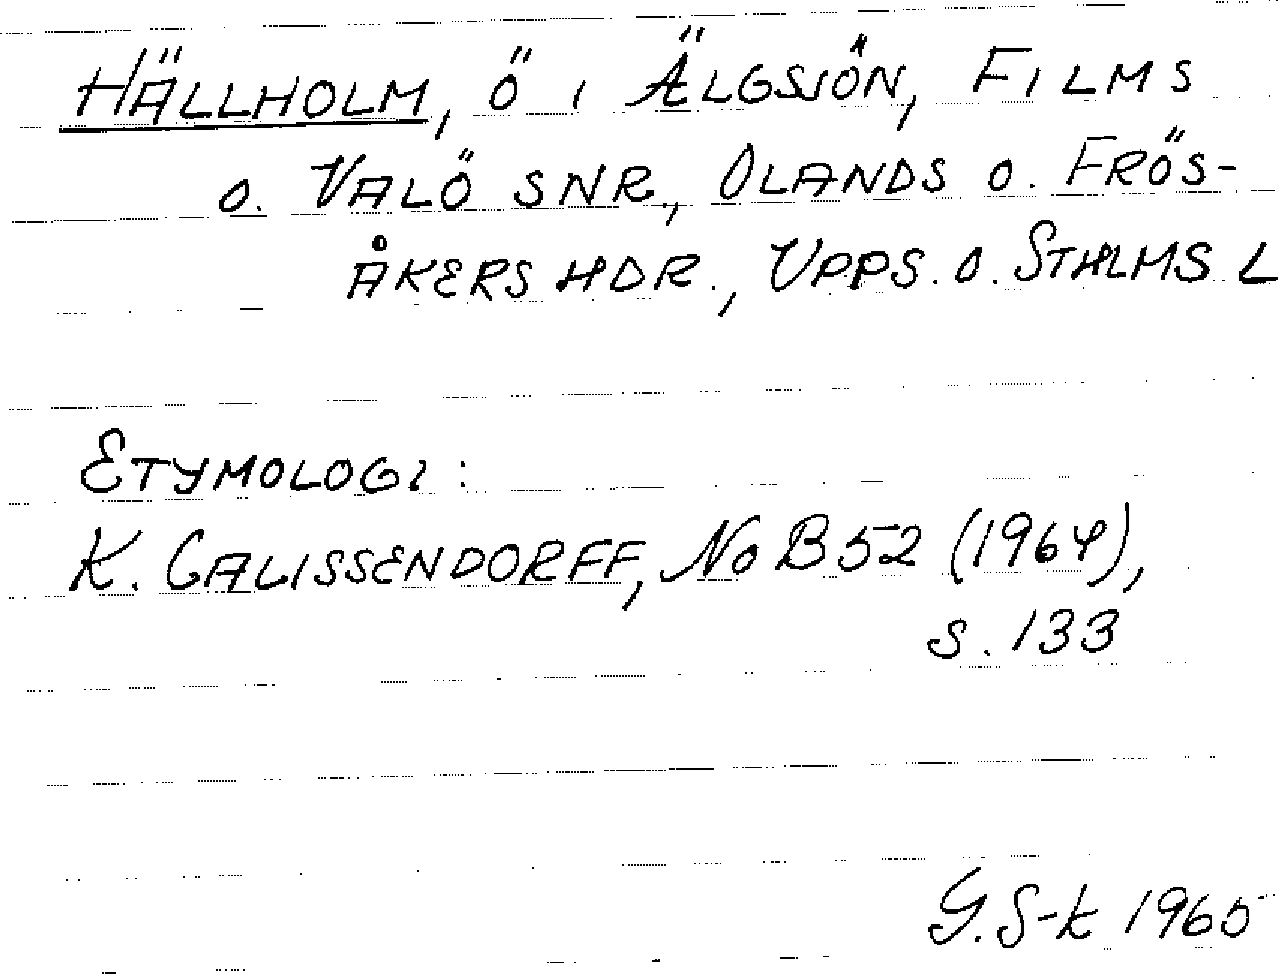 HÄLLHOLM, Ö I ÄLGSJÖN, FILMS
O. VALÖ SNR, OLANDS O. FRÖS-
ÅKERS HDR., UPPS. O. STHLMS L
ETYMOLOGI:
K. CALISSENDORFF, NoB 52 (1964),
S. 133
G. S-k 1965